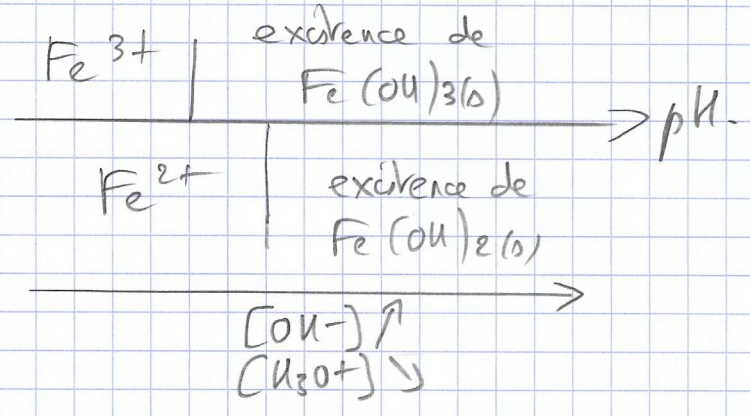 Fe 3+ | existence de
Fe(OH)3(s)
pH.
Fe 2+ | existence de
Fe(OH)2(s)
[OH-] ↗
[H3O+] ↘